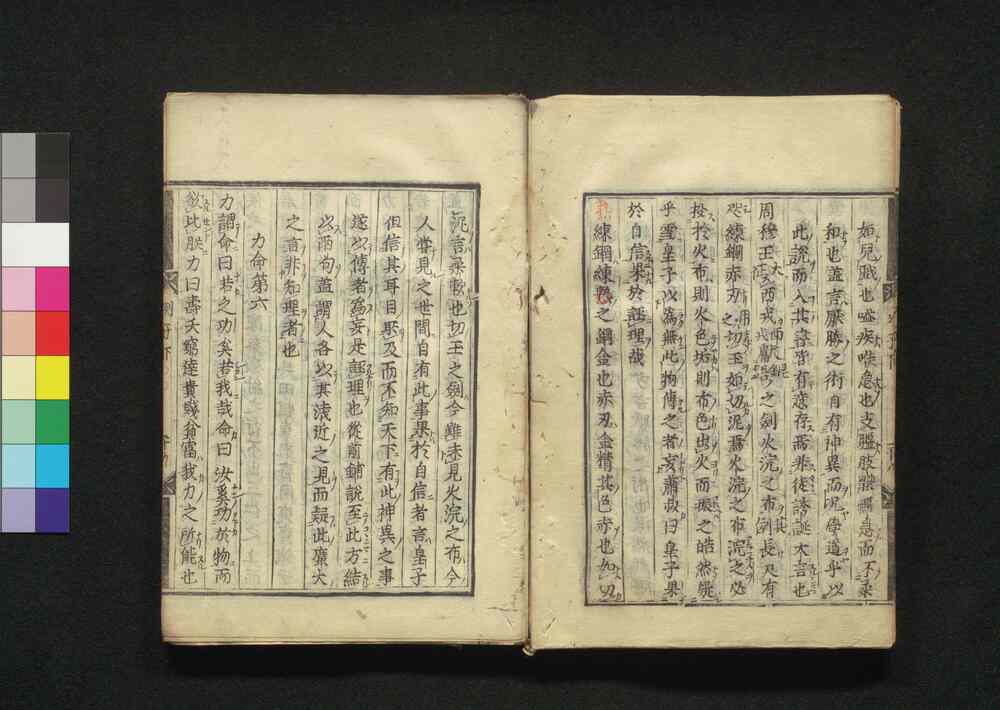 如兒賊也嗌疾喉急也支䐴肢骸㾦急而不柔
和也蓋言厭勝之術自有神異而况學道乎以
此説而入其書皆有意存焉非徒誘誕大言也
周穆王大征西戎西戎獻錕鋙之劍火浣之布劍長尺有
咫練鋼赤刃用之切玉如切泥焉火浣之布浣之必
投於火布則火色垢則布色出火而振之皓然疑
乎雪皇子以為無此物傳之者妄蕭叔曰皇子果
於自信果於誣理哉
練鋼練熟之鋼金也赤刃金精其色赤也如切
泥言柔軟也切玉之劍今雖未見火浣之布今
人嘗見之世間自有此事果於自信者言皇子
但信其耳目所及而不知天下有此神異之事
遂以傳者為妄是誣理也從前鋪説至此方結
以兩句蓋謂人各以其淺近之見而疑此廣大
之言非知理者也
力命第六
力謂命曰若之功奚若我哉命曰汝奚功於物而
欲比朕力曰壽夭窮達貴賤貧富我力之所能也